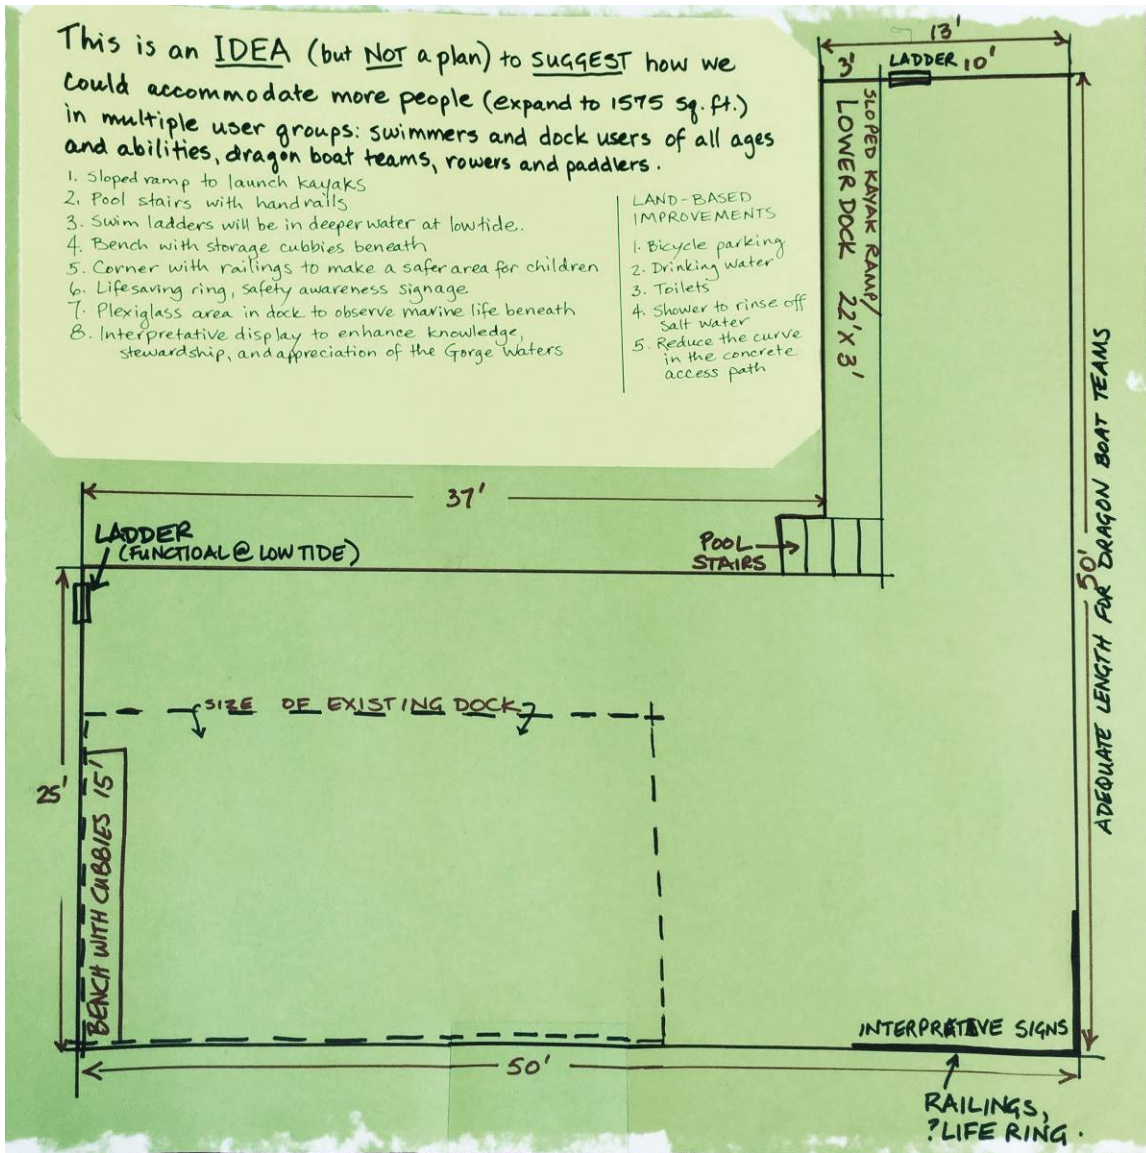 This is an IDEA (but NOT a plan) to SUGGEST how we
could accommodate more people (expand to 1575 sq. ft.)
in multiple user groups: swimmers and dock users of all ages
and abilities, dragon boat teams, rowers and paddlers.
1. Sloped ramp to launch kayaks
2. Pool stairs with handrails
3. Swim ladders will be in deeper water at low tide.
4. Bench with storage cubbies beneath
5. Corner with railings to make a safer area for children
6. Lifesaving ring, safety awareness signage
7. Plexiglass area in dock to observe marine life beneath
8. Interpretative display to enhance knowledge,
stewardship, and appreciation of the Gorge Waters
LAND-BASED
IMPROVEMENTS
1. Bicycle parking
2. Drinking water
3. Toilets
4. Shower to rinse off
salt water
5. Reduce the curve
in the concrete
access path
13'
3'
LADDER 10'
SLOPED KAYAK RAMP/
LOWER DOCK 22' X 3'
37'
LADDER
(FUNCTIOAL @ LOW TIDE)
POOL
STAIRS
50'
ADEQUATE LENGTH FOR DRAGON BOAT TEAMS
SIZE OF EXISTING DOCK
25'
BENCH WITH CUBBIES 15'
INTERPRETIVE SIGNS
50'
RAILINGS,
? LIFE RING.